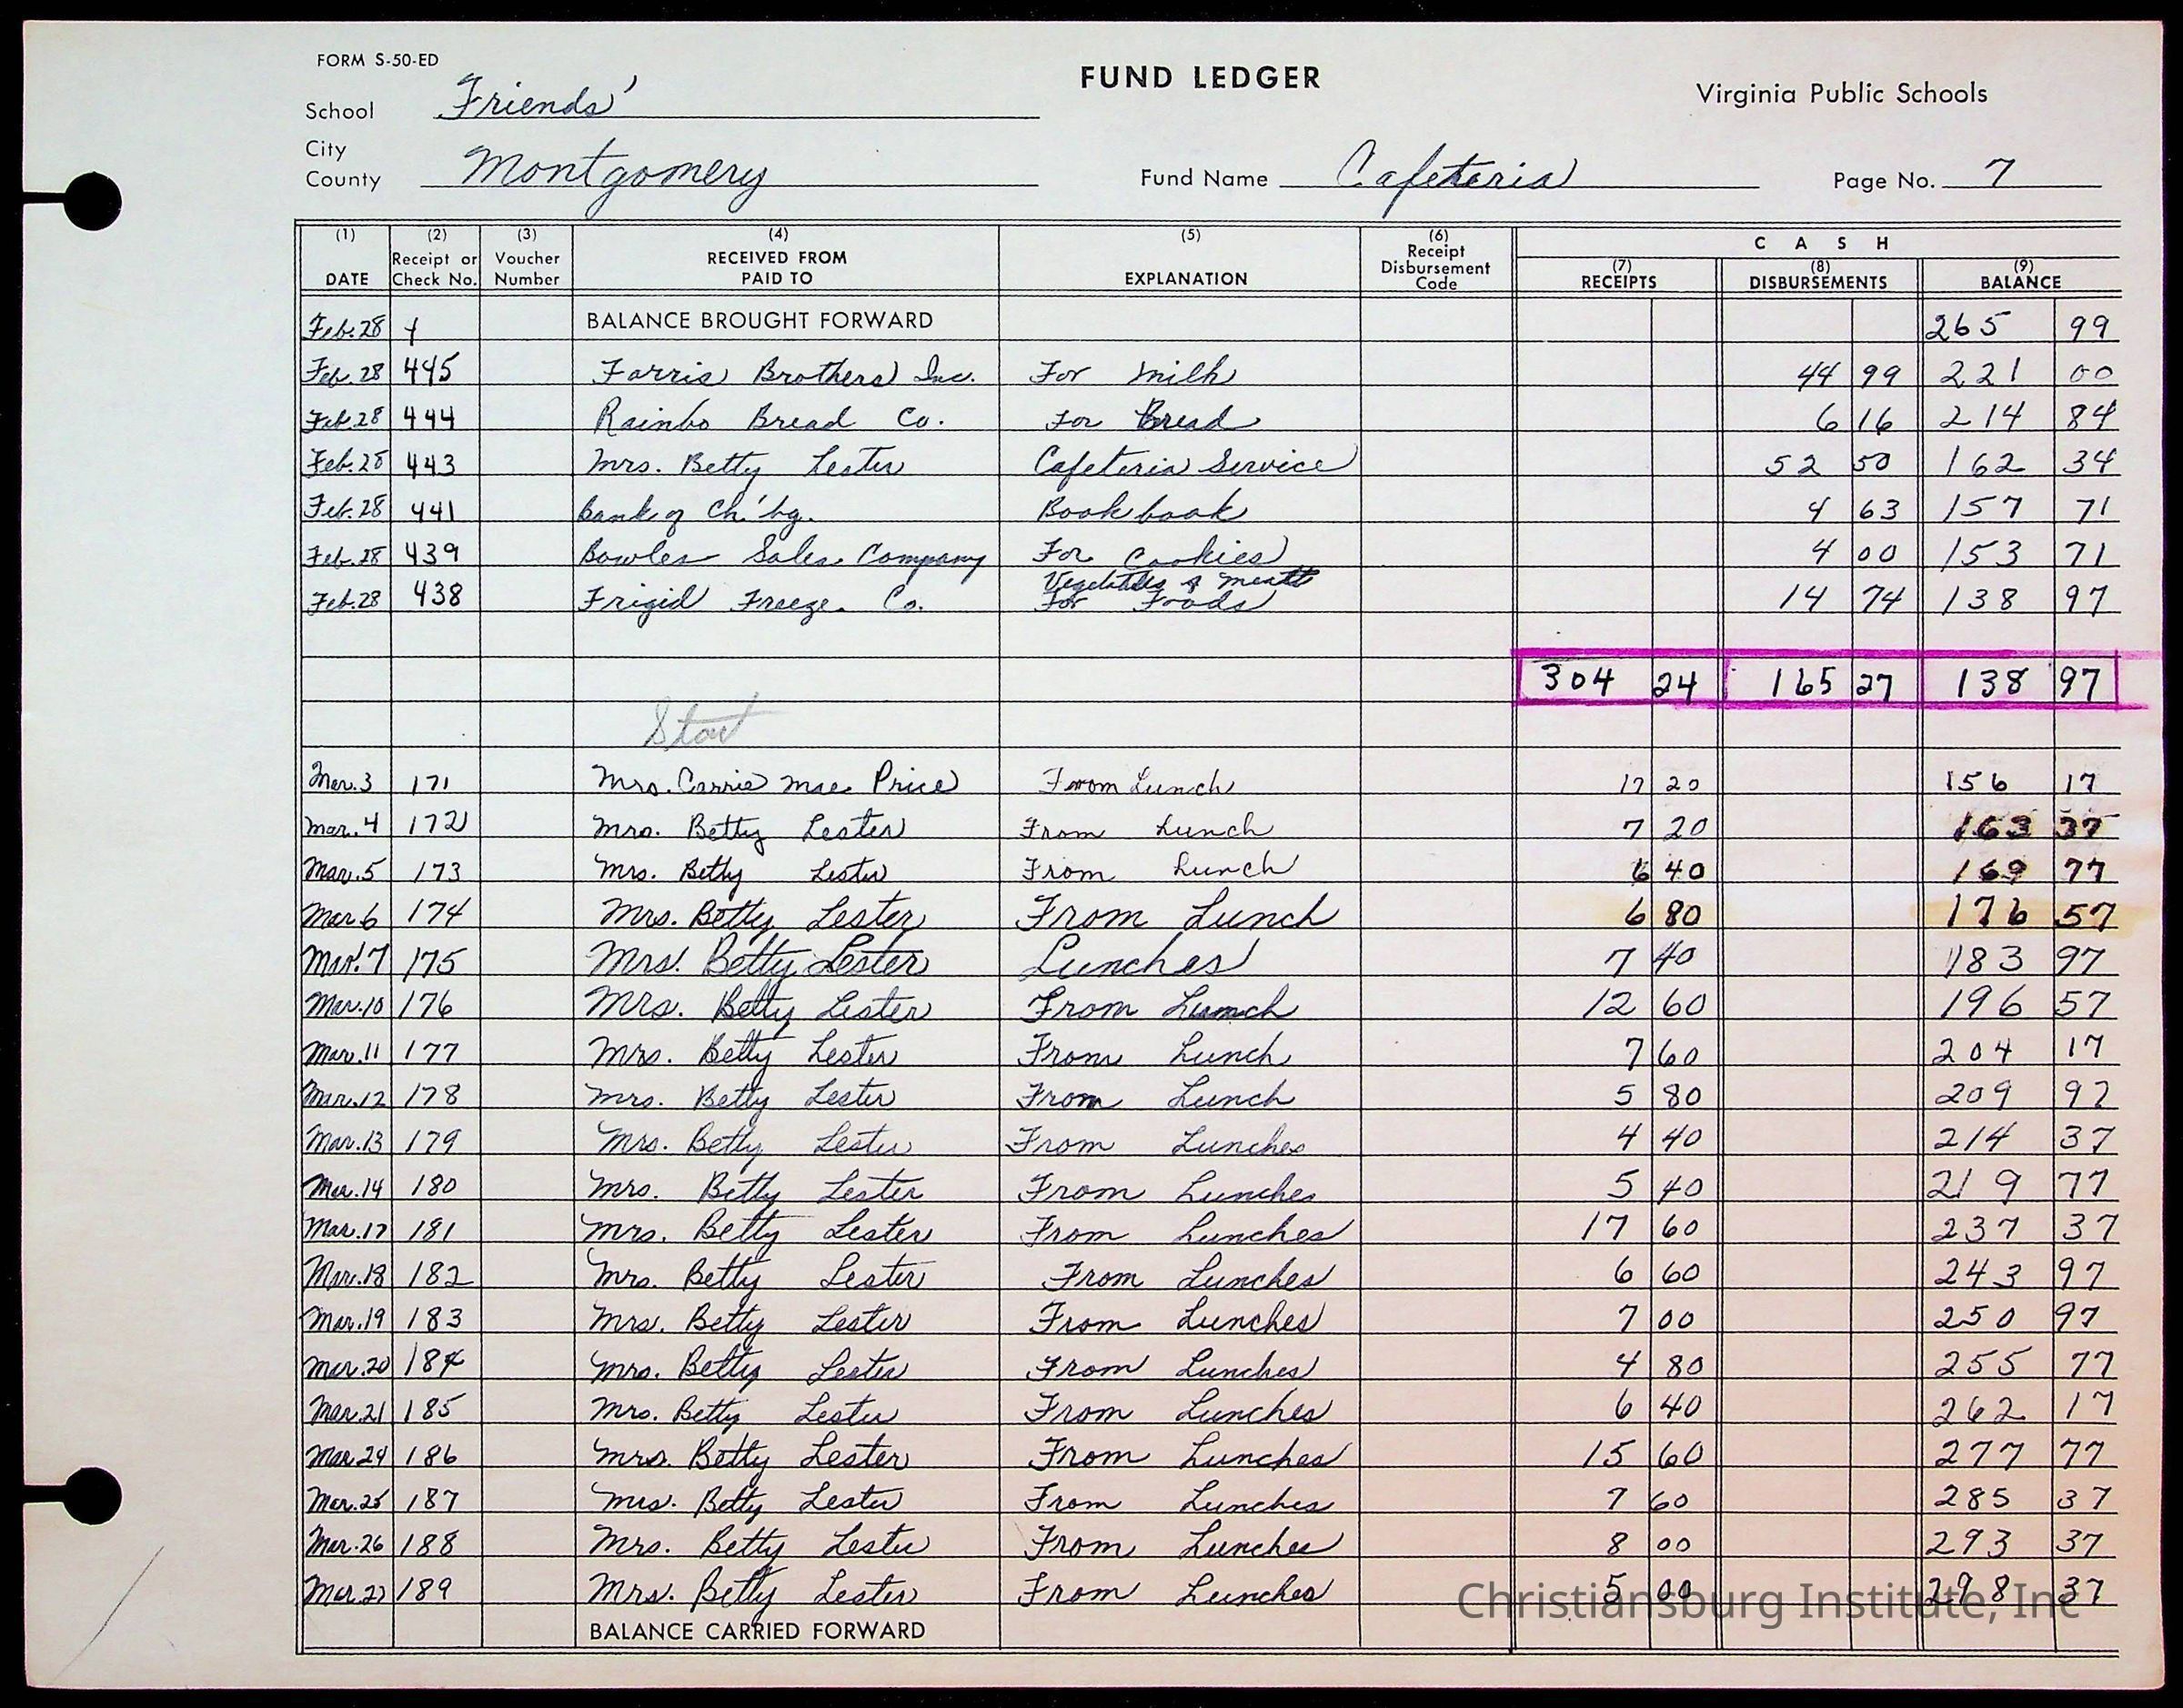 FORM S-50-ED
FUND LEDGER
Virginia Public Schools
School Friends'
City
County Montgomery Fund Name Cafeteria Page No. 7
(1) (2) (3) (4) (5) (6) C A S H
DATE Receipt or Check No. Voucher Number RECEIVED FROM PAID TO EXPLANATION Receipt Disbursement Code (7) RECEIPTS (8) DISBURSEMENTS (9) BALANCE
Feb. 28 BALANCE BROUGHT FORWARD 265 99
Feb. 28 445 Farris Brothers Inc. For Milk 44 99 221 00
Feb. 28 444 Rainbo Bread Co. For Bread 6 16 214 84
Feb. 28 443 Mrs. Betty Lester Cafeteria Service 52 50 162 34
Feb. 28 441 Bank of Ch'bg. Book book 4 63 157 71
Feb. 28 439 Bowles Sales Company For Cookies 4 00 153 71
Vegetables & meats
Feb. 28 438 Frigid Freeze Co. For Foods 14 74 138 97
304 24 165 27 138 97
Start
Mar. 3 171 Mrs. Carrie Mae Price From Lunch 17 20 156 17
Mar. 4 172 Mrs. Betty Lester From Lunch 7 20 163 37
Mar. 5 173 Mrs. Betty Lester From Lunch 6 40 169 77
Mar 6 174 Mrs. Betty Lester From Lunch 6 80 176 57
Mar. 7 175 Mrs. Betty Lester Lunches 7 40 183 97
Mar. 10 176 Mrs. Betty Lester From Lunch 12 60 196 57
Mar. 11 177 Mrs. Betty Lester From Lunch 7 60 204 17
Mar. 12 178 Mrs. Betty Lester From Lunch 5 80 209 97
Mar. 13 179 Mrs. Betty Lester From Lunches 4 40 214 37
Mar. 14 180 Mrs. Betty Lester From Lunches 5 40 219 77
Mar. 17 181 Mrs. Betty Lester From Lunches 17 60 237 37
Mar. 18 182 Mrs. Betty Lester From Lunches 6 60 243 97
Mar. 19 183 Mrs. Betty Lester From Lunches 7 00 250 97
Mar. 20 184 Mrs. Betty Lester From Lunches 4 80 255 77
Mar. 21 185 Mrs. Betty Lester From Lunches 6 40 262 17
Mar. 24 186 Mrs. Betty Lester From Lunches 15 60 277 77
Mar. 25 187 Mrs. Betty Lester From Lunches 7 60 285 37
Mar. 26 188 Mrs. Betty Lester From Lunches 8 00 293 37
Mar. 27 189 Mrs. Betty Lester From Lunches 5 00 298 37
Christiansburg Institute, Inc
BALANCE CARRIED FORWARD